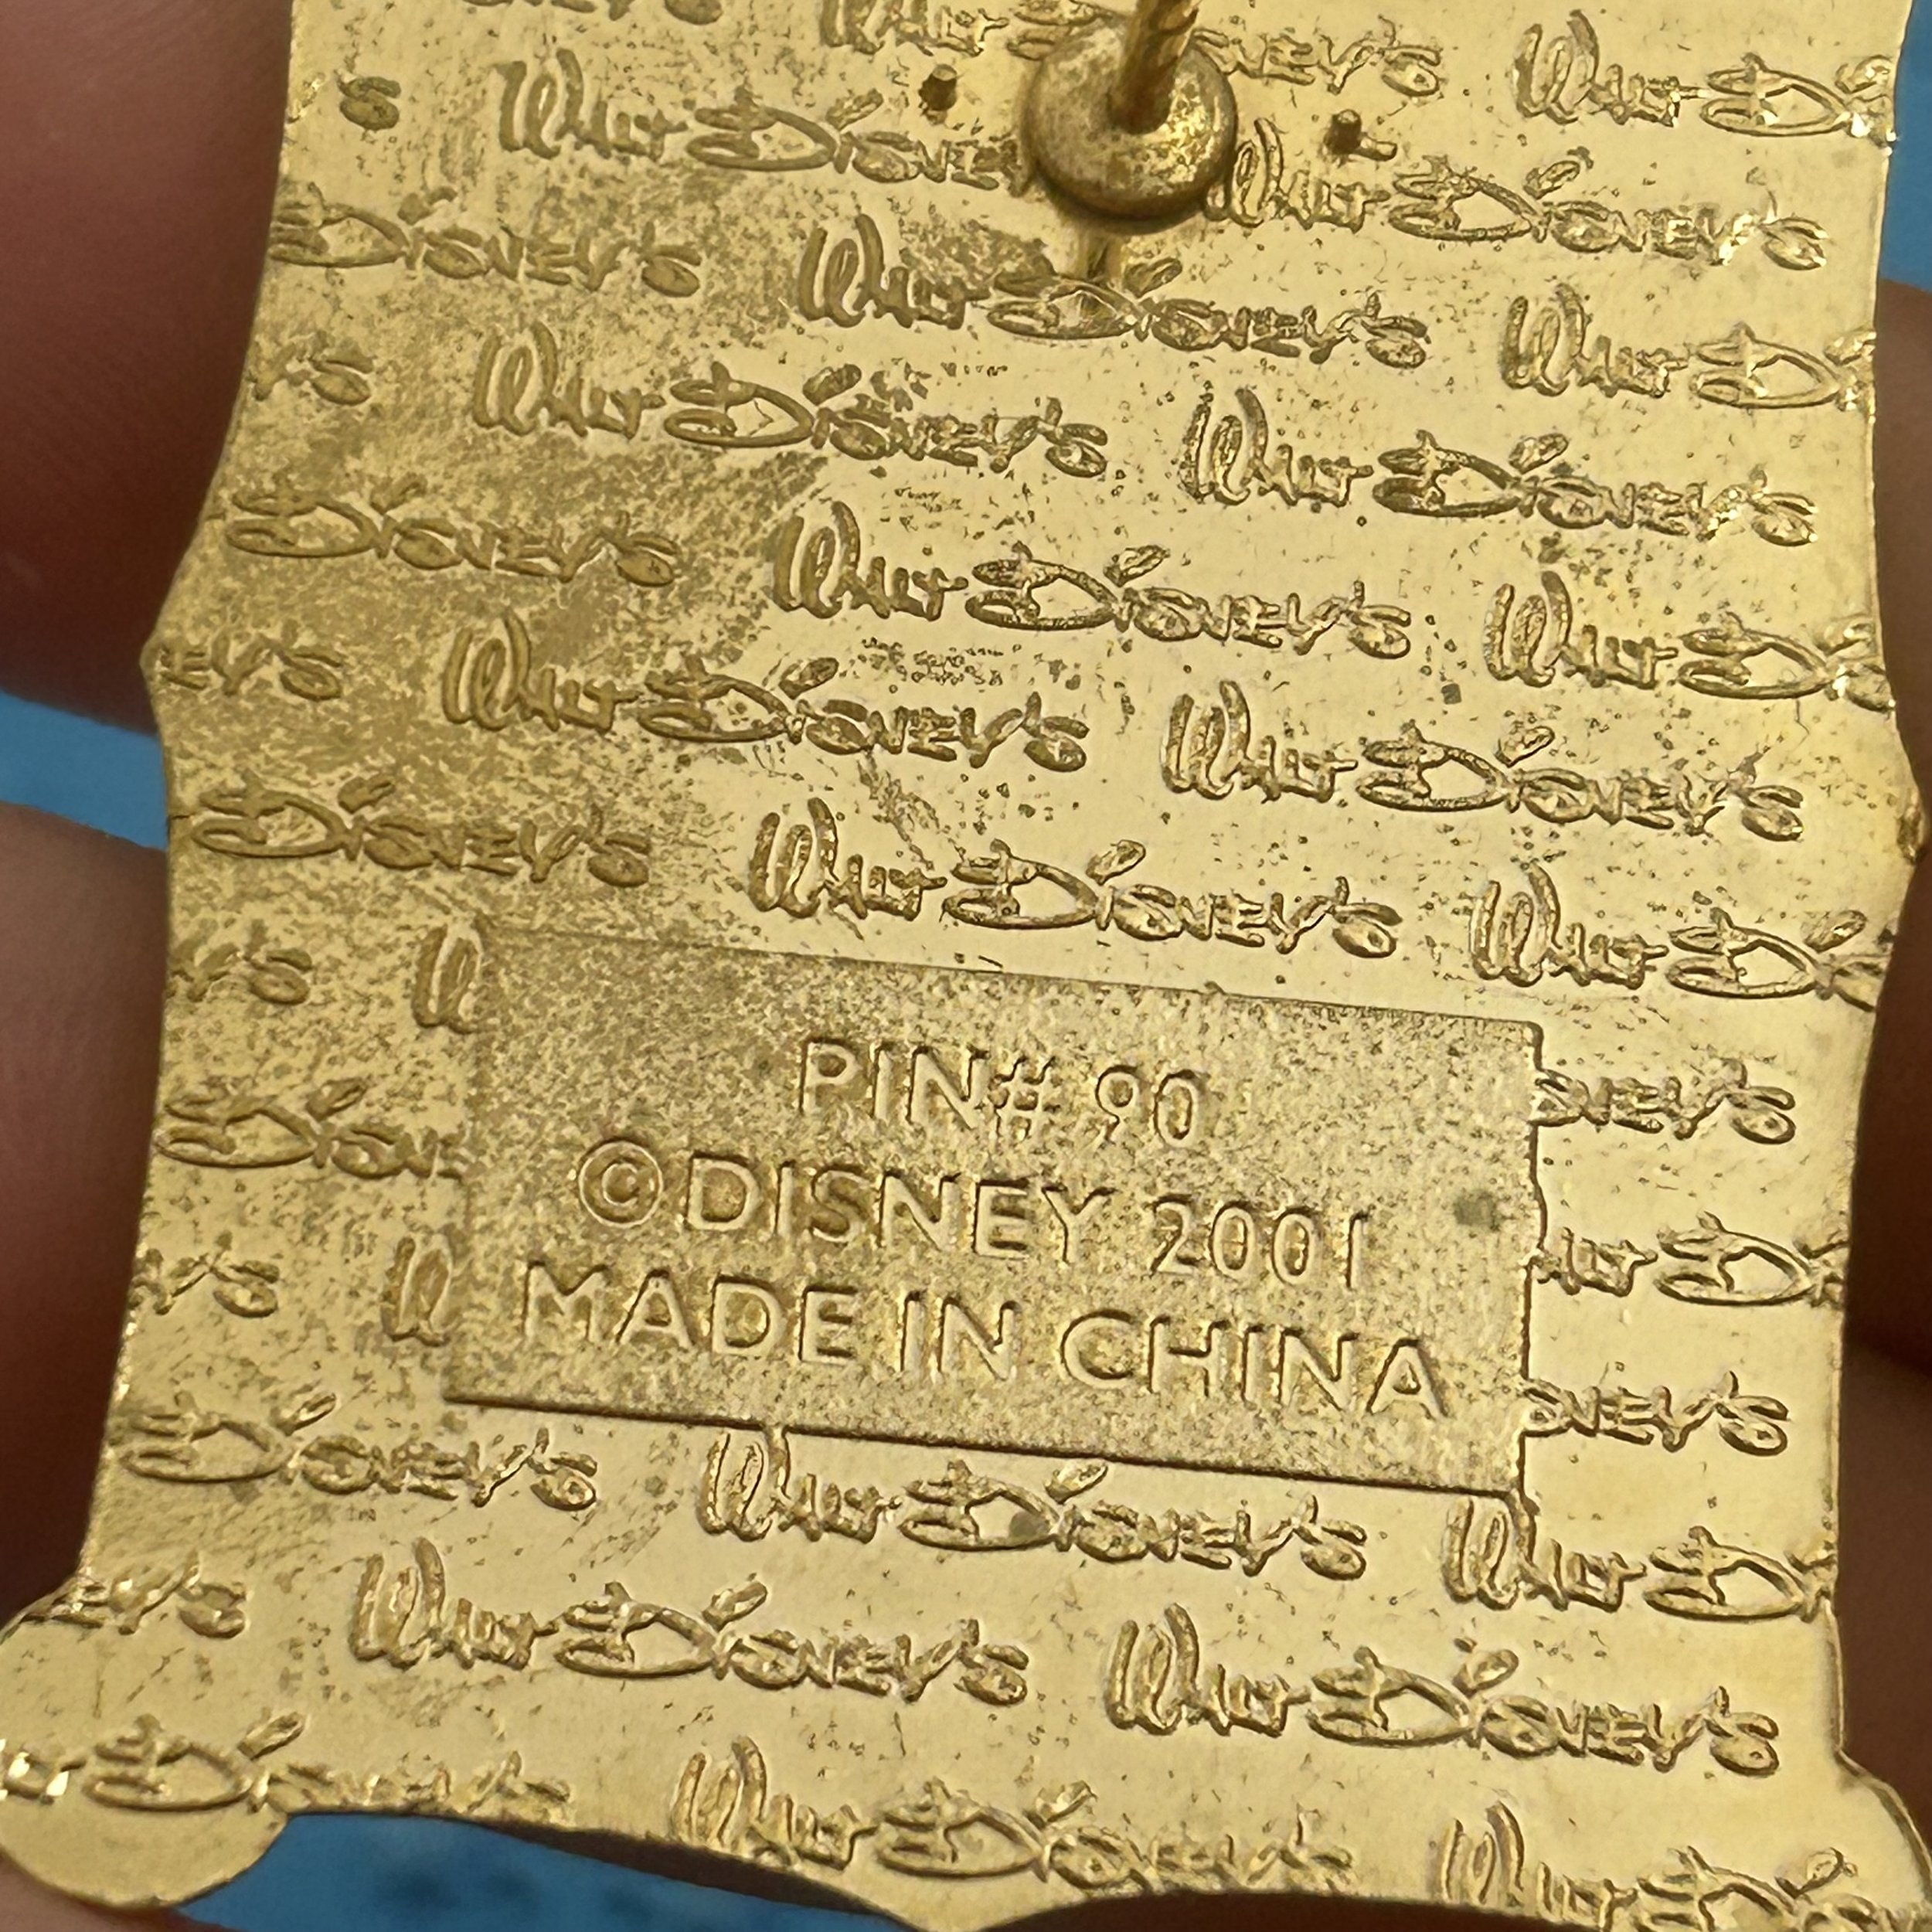 NEY'S Walt Disney's Walt Dis
S Walt Disney Walt Disney's
Disney's Walt Disney's Walt D
Y'S Walt Disney's Walt Disney's
Disney's Walt Disney's Walt D
EY'S Walt Disney's Walt Disney's
Disney's Walt Disney's Walt D
Y'S W
PIN# 90
Disne NEY'S
©DISNEY 2001
Y'S W alt D
MADE IN CHINA
NEY'S
Disney's Walt Disney's Walt D
EY'S Walt Disney's Walt Disney's
Disney's Walt Disney's Walt Disney